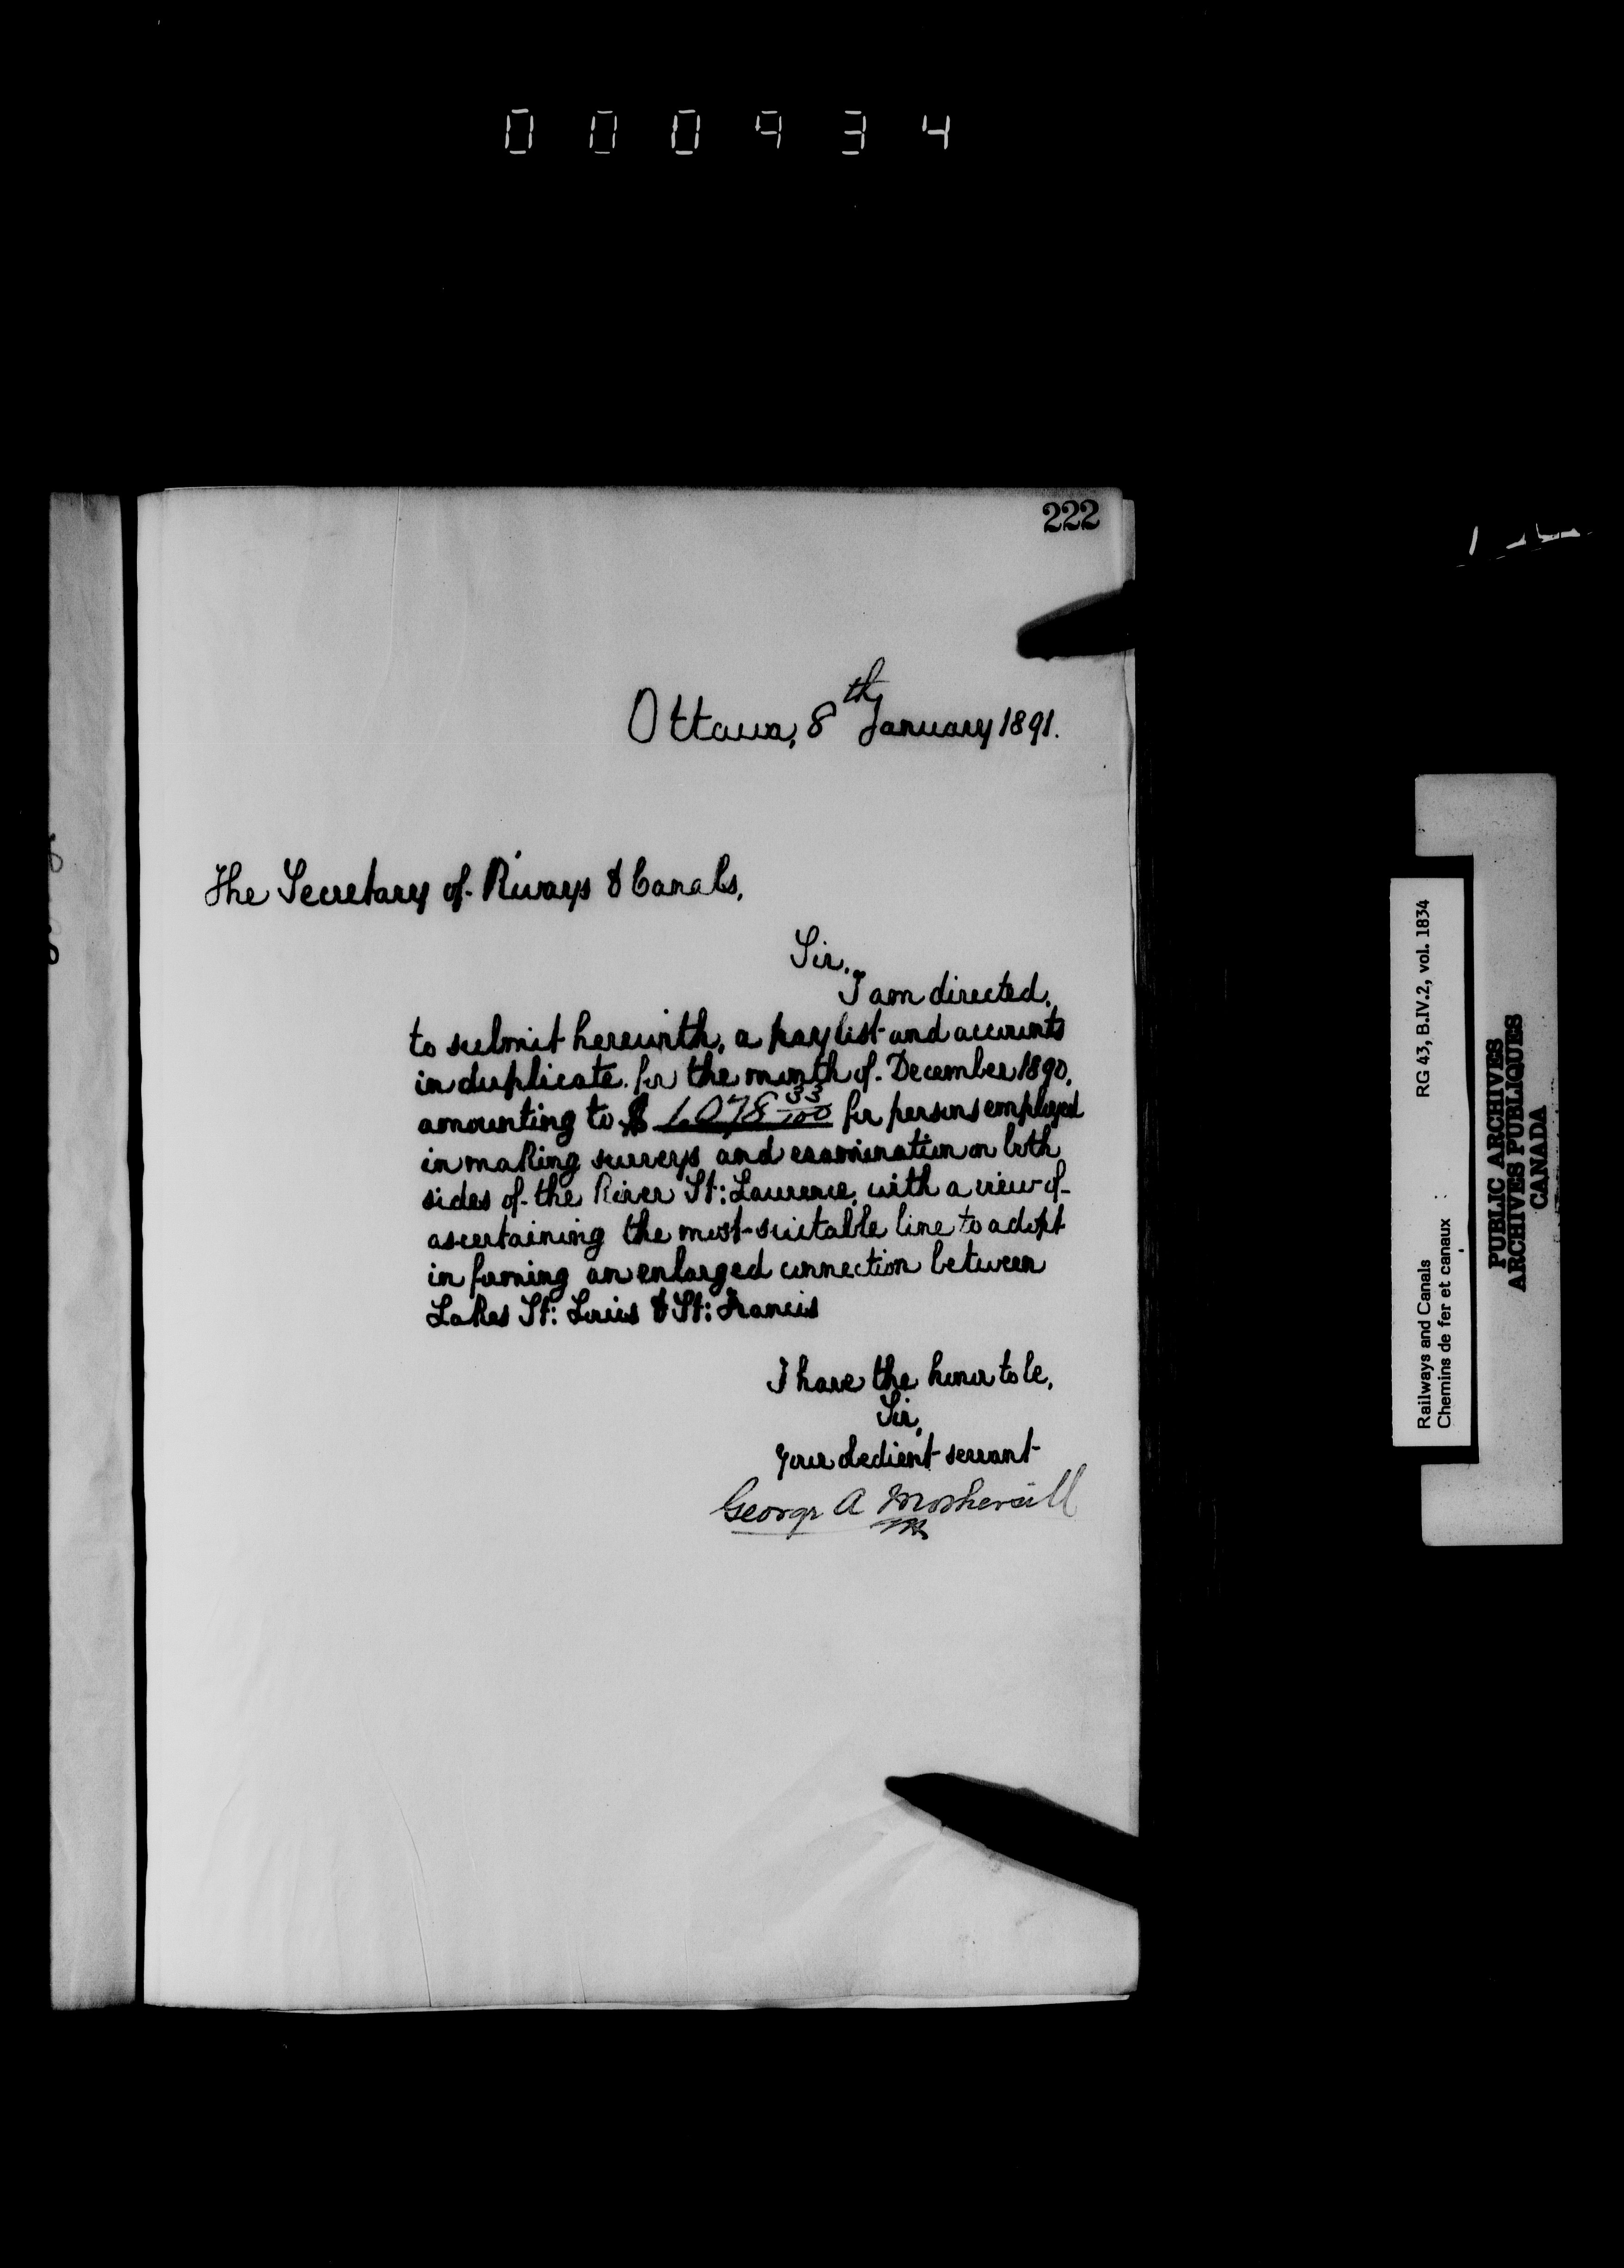 000934
222
Ottawa, 8th January 1891.
The Secretary of Rways & Canals,
Sir,
I am directed,
to submit herewith, a paylist and accounts
in duplicate for the month of December 1890,
amounting to $ 1,078 33/100 for persons employed
in making surveys and examination on both
sides of the River St: Lawrence, with a view of
ascertaining the most suitable line to adopt
in forming an enlarged connection between
Lakes St: Louis & St: Francis
I have the honor to be,
Sir,
Your obedient servant
George A Mothersill
RG 43, B.IV.2, vol. 1834
Railways and Canals
Chemins de fer et canaux
PUBLIC ARCHIVES
ARCHIVES PUBLIQUES
CANADA